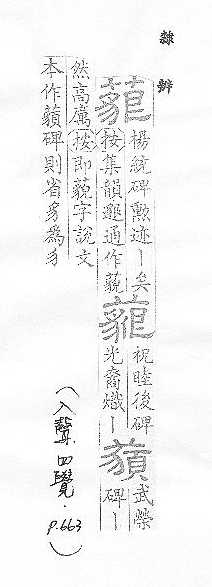 隸辨
藐
楊統碑勲迹丨矣
按集韻邈通作藐
藐
祝睦後碑
光裔熾丨
藐
武榮
碑丨
然高厲按即藐字說文
本作碑則省豸為
(入聲四覺. p.663)